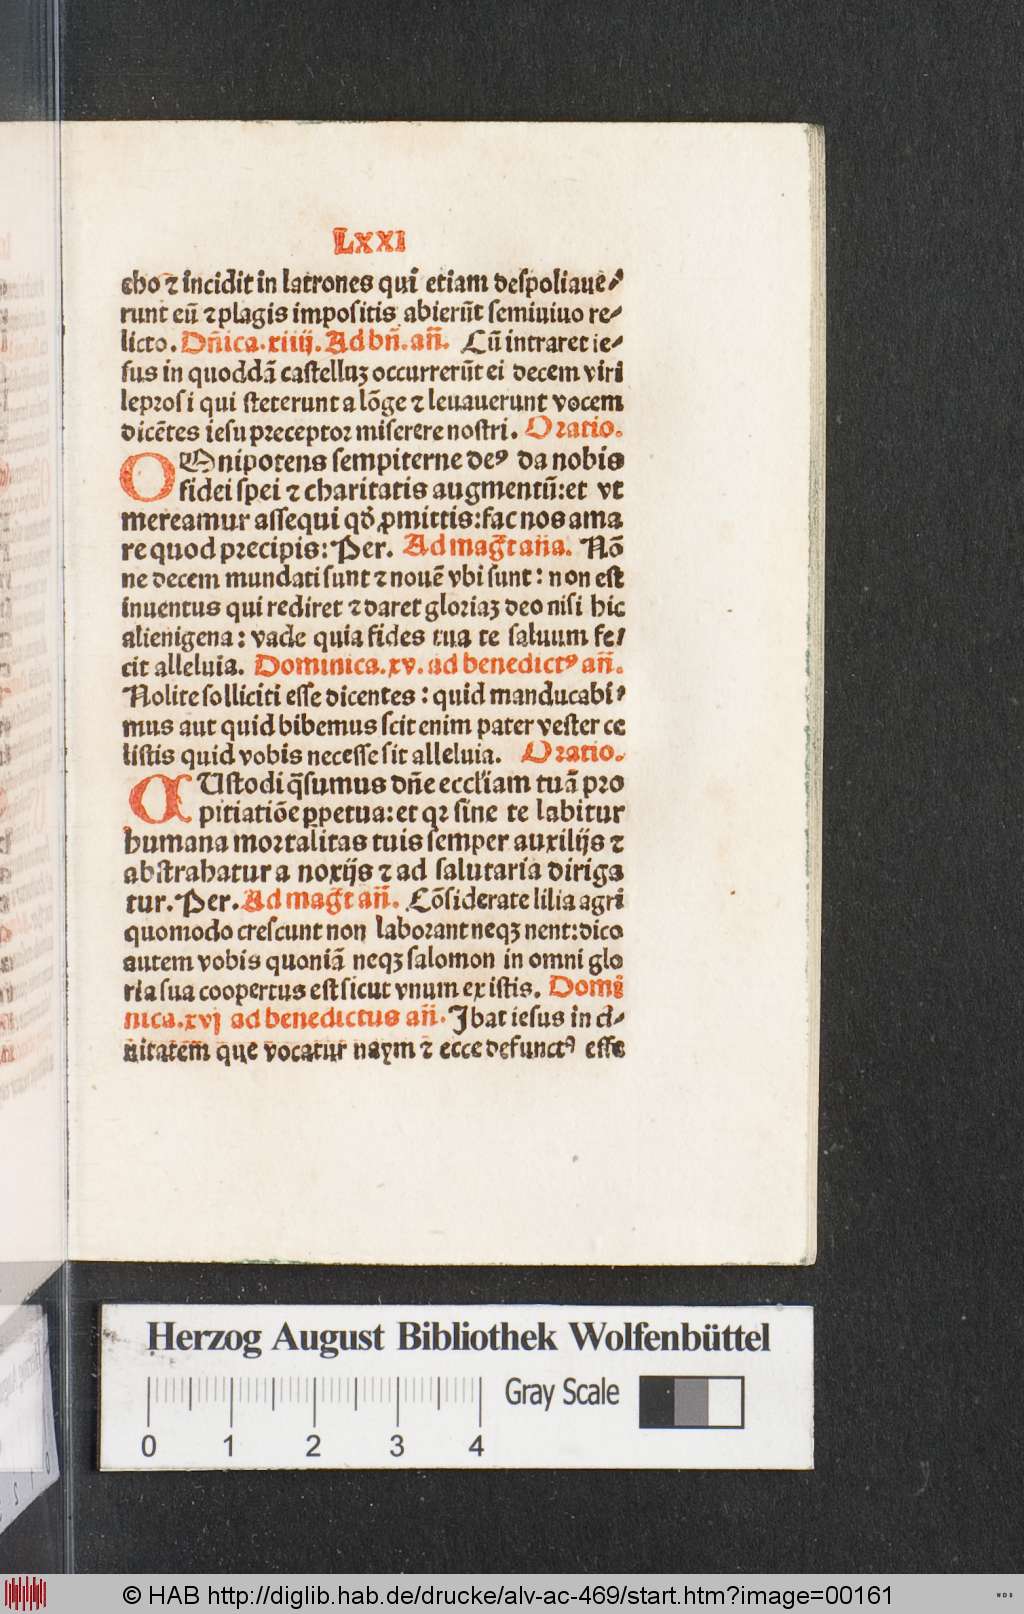 LXXI
cho ⁊ incidit in latrones qui etiam despoliaue⸗
runt eū ⁊ plagis impositis abierūt seminiuo re⸗
licto. Dn̄ica.xiiij. Ad bn̄. an̄. Cū intraret ie⸗
sus in quoddā castelluꝫ occurrerūt ei decem viri
leprosi qui steterunt a lōge ⁊ leuauerunt vocem
dicētes iesu preceptor miserere nostri. Oratio.
OMnipotens sempiterne deꝰ da nobis
fidei spei ⁊ charitatis augmentū: et vt
mereamur assequi qđ ꝓmittis: fac nos ama
re quod precipis: Per. Ad mag̃t an̄a. Nō
ne decem mundati sunt ⁊ nouē vbi sunt: non est
inuentus qui rediret ⁊ daret gloriaꝫ deo nisi hic
alienigena: vade quia fides tua te saluum fe⸗
cit alleluia. Dominica.xv. ad benedictꝰ an̄.
Nolite solliciti esse dicentes: quid manducabi⸗
mus aut quid bibemus scit enim pater vester ce
listis quid vobis necesse sit alleluia. Oratio.
CUstodi q̄sumus dn̄e eccl̄iam tuā pro
pitiatiōe ꝑpetua: et qꝛ sine te labitur
humana mortalitas tuis semper auxilijs ⁊
abstrahatur a noxijs ⁊ ad salutaria diriga
tur. Per. Ad mag̃t an̄. Cōsiderate lilia agri
quomodo crescunt non laborant neqꝫ nent: dico
autem vobis quoniā neqꝫ salomon in omni glo
ria sua coopertus est sicut vnum ex istis. Domi
nica.xvj ad benedictus an̄. Ibat iesus in ci⸗
uitatem que vocatur naym ⁊ ecce defunctꝰ esse
Herzog August Bibliothek Wolfenbüttel
Gray Scale
0 1 2 3 4
© HAB http://diglib.hab.de/drucke/alv-ac-469/start.htm?image=00161